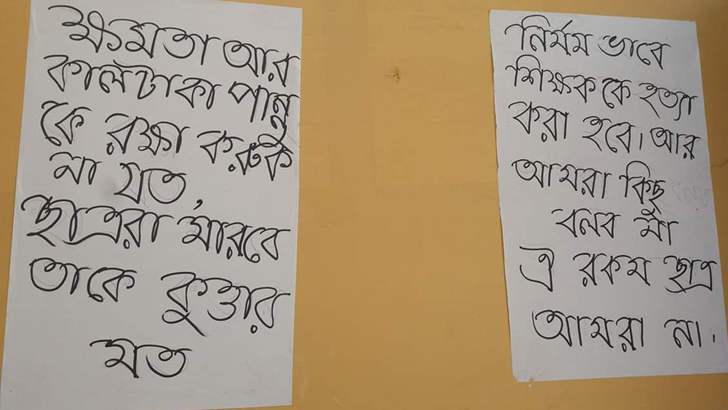 ক্ষমতা আর
কালটাকা পান্নু
কে রক্ষা করুক
না যত,
ছাত্ররা মারবে
তাকে কুত্তার
মত
নির্মম ভাবে
শিক্ষক কে হত্যা
করা হবে। আর
আমরা কিছু
বলব না
ঐ রকম ছাত্র
আমরা না।